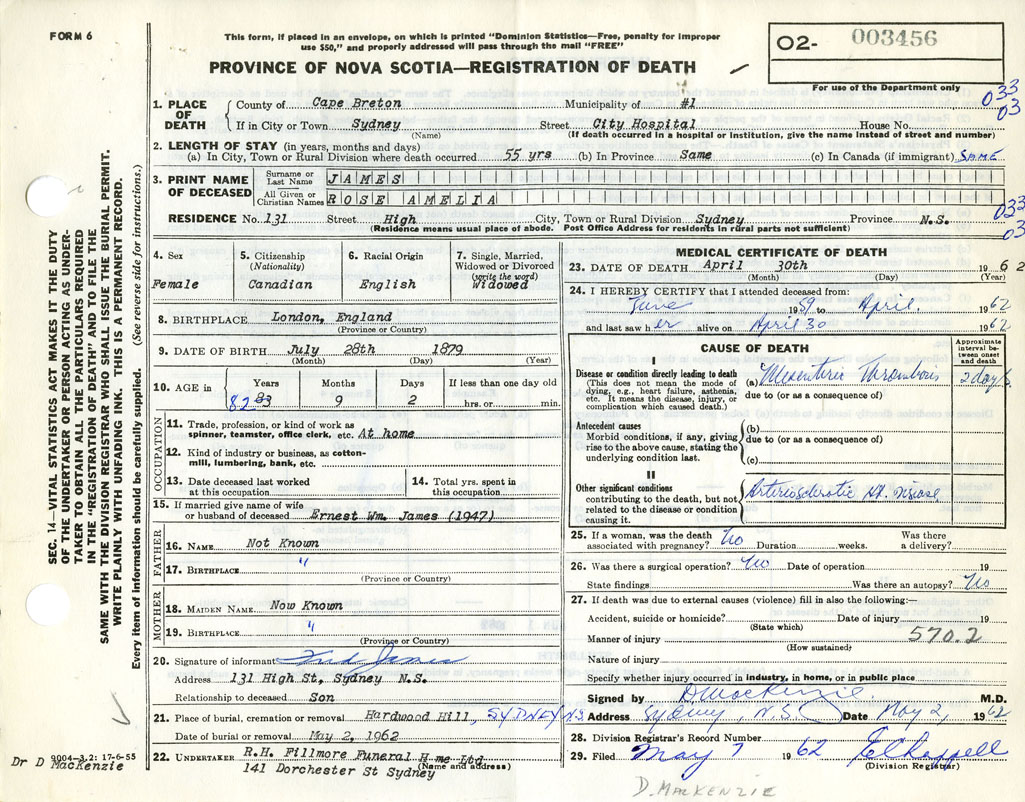 FORM 6
This form, if placed in an envelope, on which is printed "Dominion Statistics—Free, penalty for improper
use $50," and properly addressed will pass through the mail "FREE"
O2- 003456
PROVINCE OF NOVA SCOTIA—REGISTRATION OF DEATH
For use of the Department only
033
03
1. PLACE OF DEATH
County of Cape Breton Municipality of #1
If in City or Town Sydney Street City Hospital House No.
(Name) (If death occurred in a hospital or institution, give the name instead of street and number)
2. LENGTH OF STAY (in years, months and days)
(a) In City, Town or Rural Division where death occurred 55 yrs (b) In Province Same (c) In Canada (if immigrant) SAME
3. PRINT NAME OF DECEASED
Surname or Last Name JAMES
All Given or Christian Names ROSE AMELIA
033
03
RESIDENCE No. 131 Street High City, Town or Rural Division Sydney Province N.S.
(Residence means usual place of abode. Post Office Address for residents in rural parts not sufficient)
4. Sex
Female
5. Citizenship
(Nationality)
Canadian
6. Racial Origin
English
7. Single, Married,
Widowed or Divorced
(write the word)
Widowed
8. BIRTHPLACE London, England
(Province or Country)
9. DATE OF BIRTH July 28th 1879
(Month) (Day) (Year)
10. AGE in
Years Months Days If less than one day old
82 83 9 2 hrs. or min.
OCCUPATION
11. Trade, profession, or kind of work as
spinner, teamster, office clerk, etc. At home
12. Kind of industry or business, as cotton-
mill, lumbering, bank, etc.
13. Date deceased last worked
at this occupation
14. Total yrs. spent in
this occupation
15. If married give name of wife
or husband of deceased Ernest Wm. James (1947)
FATHER
16. NAME Not Known
17. BIRTHPLACE "
(Province or Country)
MOTHER
18. MAIDEN NAME Now Known
19. BIRTHPLACE "
(Province or Country)
20. Signature of informant Fred James
Address 131 High St, Sydney N.S.
Relationship to deceased Son
21. Place of burial, cremation or removal Hardwood Hill, SYDNEY N.S.
Date of burial or removal May 2, 1962
22. UNDERTAKER R.H. Fillmore Funeral H me Ltd
(Name and address)
141 Dorchester St Sydney
MEDICAL CERTIFICATE OF DEATH
23. DATE OF DEATH April 30th 1962
(Month) (Day) (Year)
24. I HEREBY CERTIFY that I attended deceased from:
June 1959 to April 1962
and last saw her alive on April 30 1962
CAUSE OF DEATH
Approximate
interval be-
tween onset
and death
I
Disease or condition directly leading to death
(This does not mean the mode of
dying, e.g., heart failure, asthenia,
etc. It means the disease, injury, or
complication which caused death.)
(a) Mesenteric Thrombosis 2 days
due to (or as a consequence of)
Antecedent causes
Morbid conditions, if any, giving
rise to the above cause, stating the
underlying condition last.
(b)
due to (or as a consequence of)
(c)
II
Other significant conditions
contributing to the death, but not
related to the disease or condition
causing it.
Arteriosclerotic Ht. Disease
25. If a woman, was the death
associated with pregnancy? No Duration weeks. Was there
a delivery?
26. Was there a surgical operation? No Date of operation 19
State findings Was there an autopsy? No
27. If death was due to external causes (violence) fill in also the following:—
Accident, suicide or homicide? Date of injury 19
(State which)
Manner of injury 570.2
(How sustained)
Nature of injury
Specify whether injury occurred in industry, in home, or in public place
Signed by D MacKenzie M.D.
Address Sydney, N.S. Date May 2, 1962
28. Division Registrar's Record Number
29. Filed May 7 1962
(Division Registrar)
D. MACKENZIE
SEC. 14—VITAL STATISTICS ACT MAKES IT THE DUTY
OF THE UNDERTAKER OR PERSON ACTING AS UNDER-
TAKER TO OBTAIN ALL THE PARTICULARS REQUIRED
IN THE "REGISTRATION OF DEATH" AND TO FILE THE
SAME WITH THE DIVISION REGISTRAR WHO SHALL ISSUE THE BURIAL PERMIT.
WRITE PLAINLY WITH UNFADING INK. THIS IS A PERMANENT RECORD.
Every item of information should be carefully supplied. (See reverse side for instructions.)
9004—3,2: 17-6-55
Dr D MacKenzie